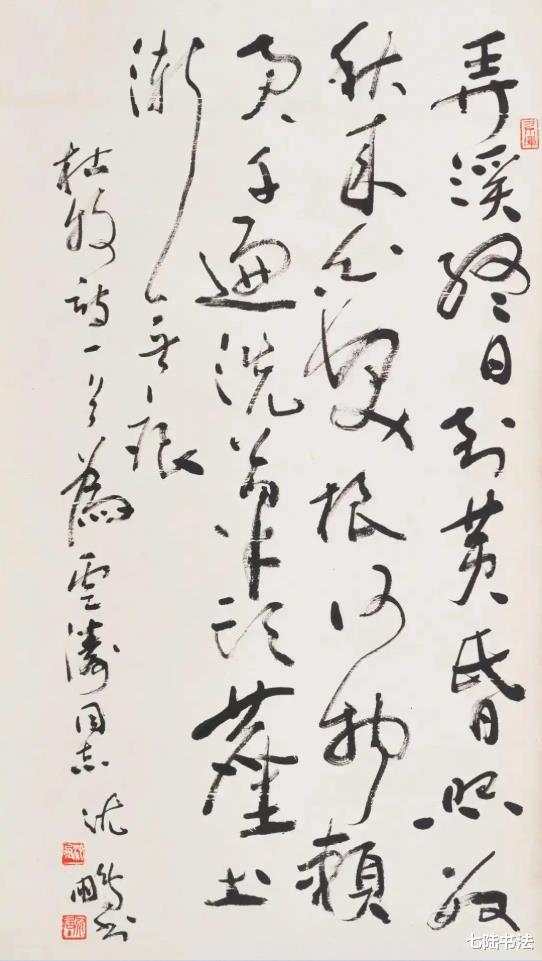 弄溪终日到黄昏照数
秋来白发根何物賴
君千遍洗笔头塵土
渐无痕
杜牧诗一首為雲濤同志 沈鹏书
七陆书法